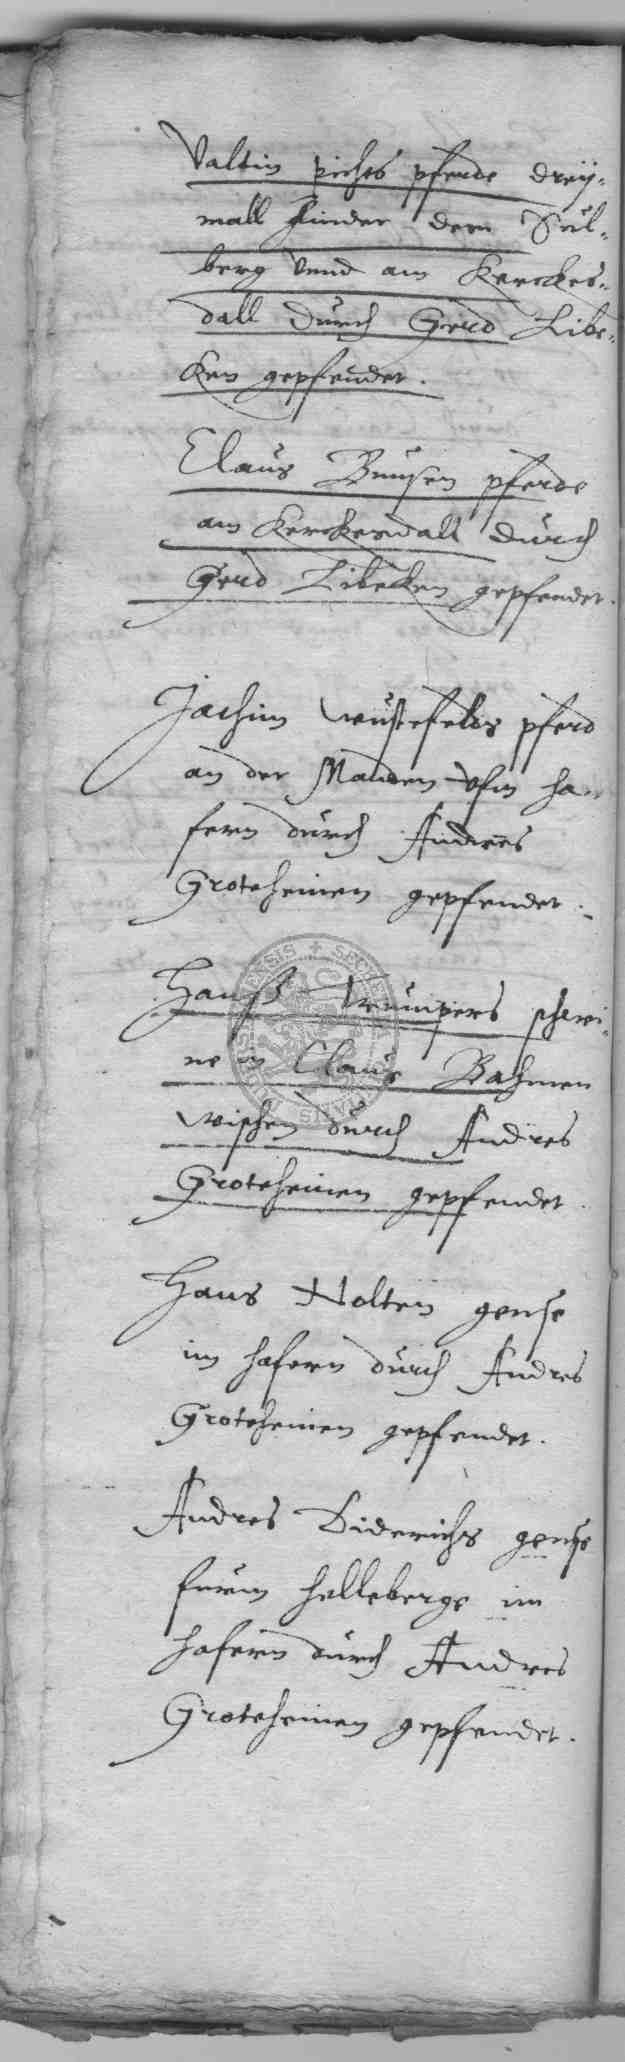 Valtin pichs pferde dreÿ-
mall hinder dem Sül-
berg vnnd am Kerckes-
dall durch Gerd Libe-
ken gepfendet.
Claus Bunsen pferde
am Kerckesdall durch
Gerd Libecken gepfendet.
Jachim wüstefelds pferd
an der Manden vfm ha-
fern durch Andres
Groteheinen gepfendet.
Hanß Trumpers schwei-
ne in Claus Bahmen
wischen durch Andres
Groteheinen gepfendet.
Hans Nolten gense
im hafern durch Andres
Groteheinen gepfendet.
Andres Diderichs gense
furm Helleberge im
hafern durch Andres
Groteheinen gepfendet.